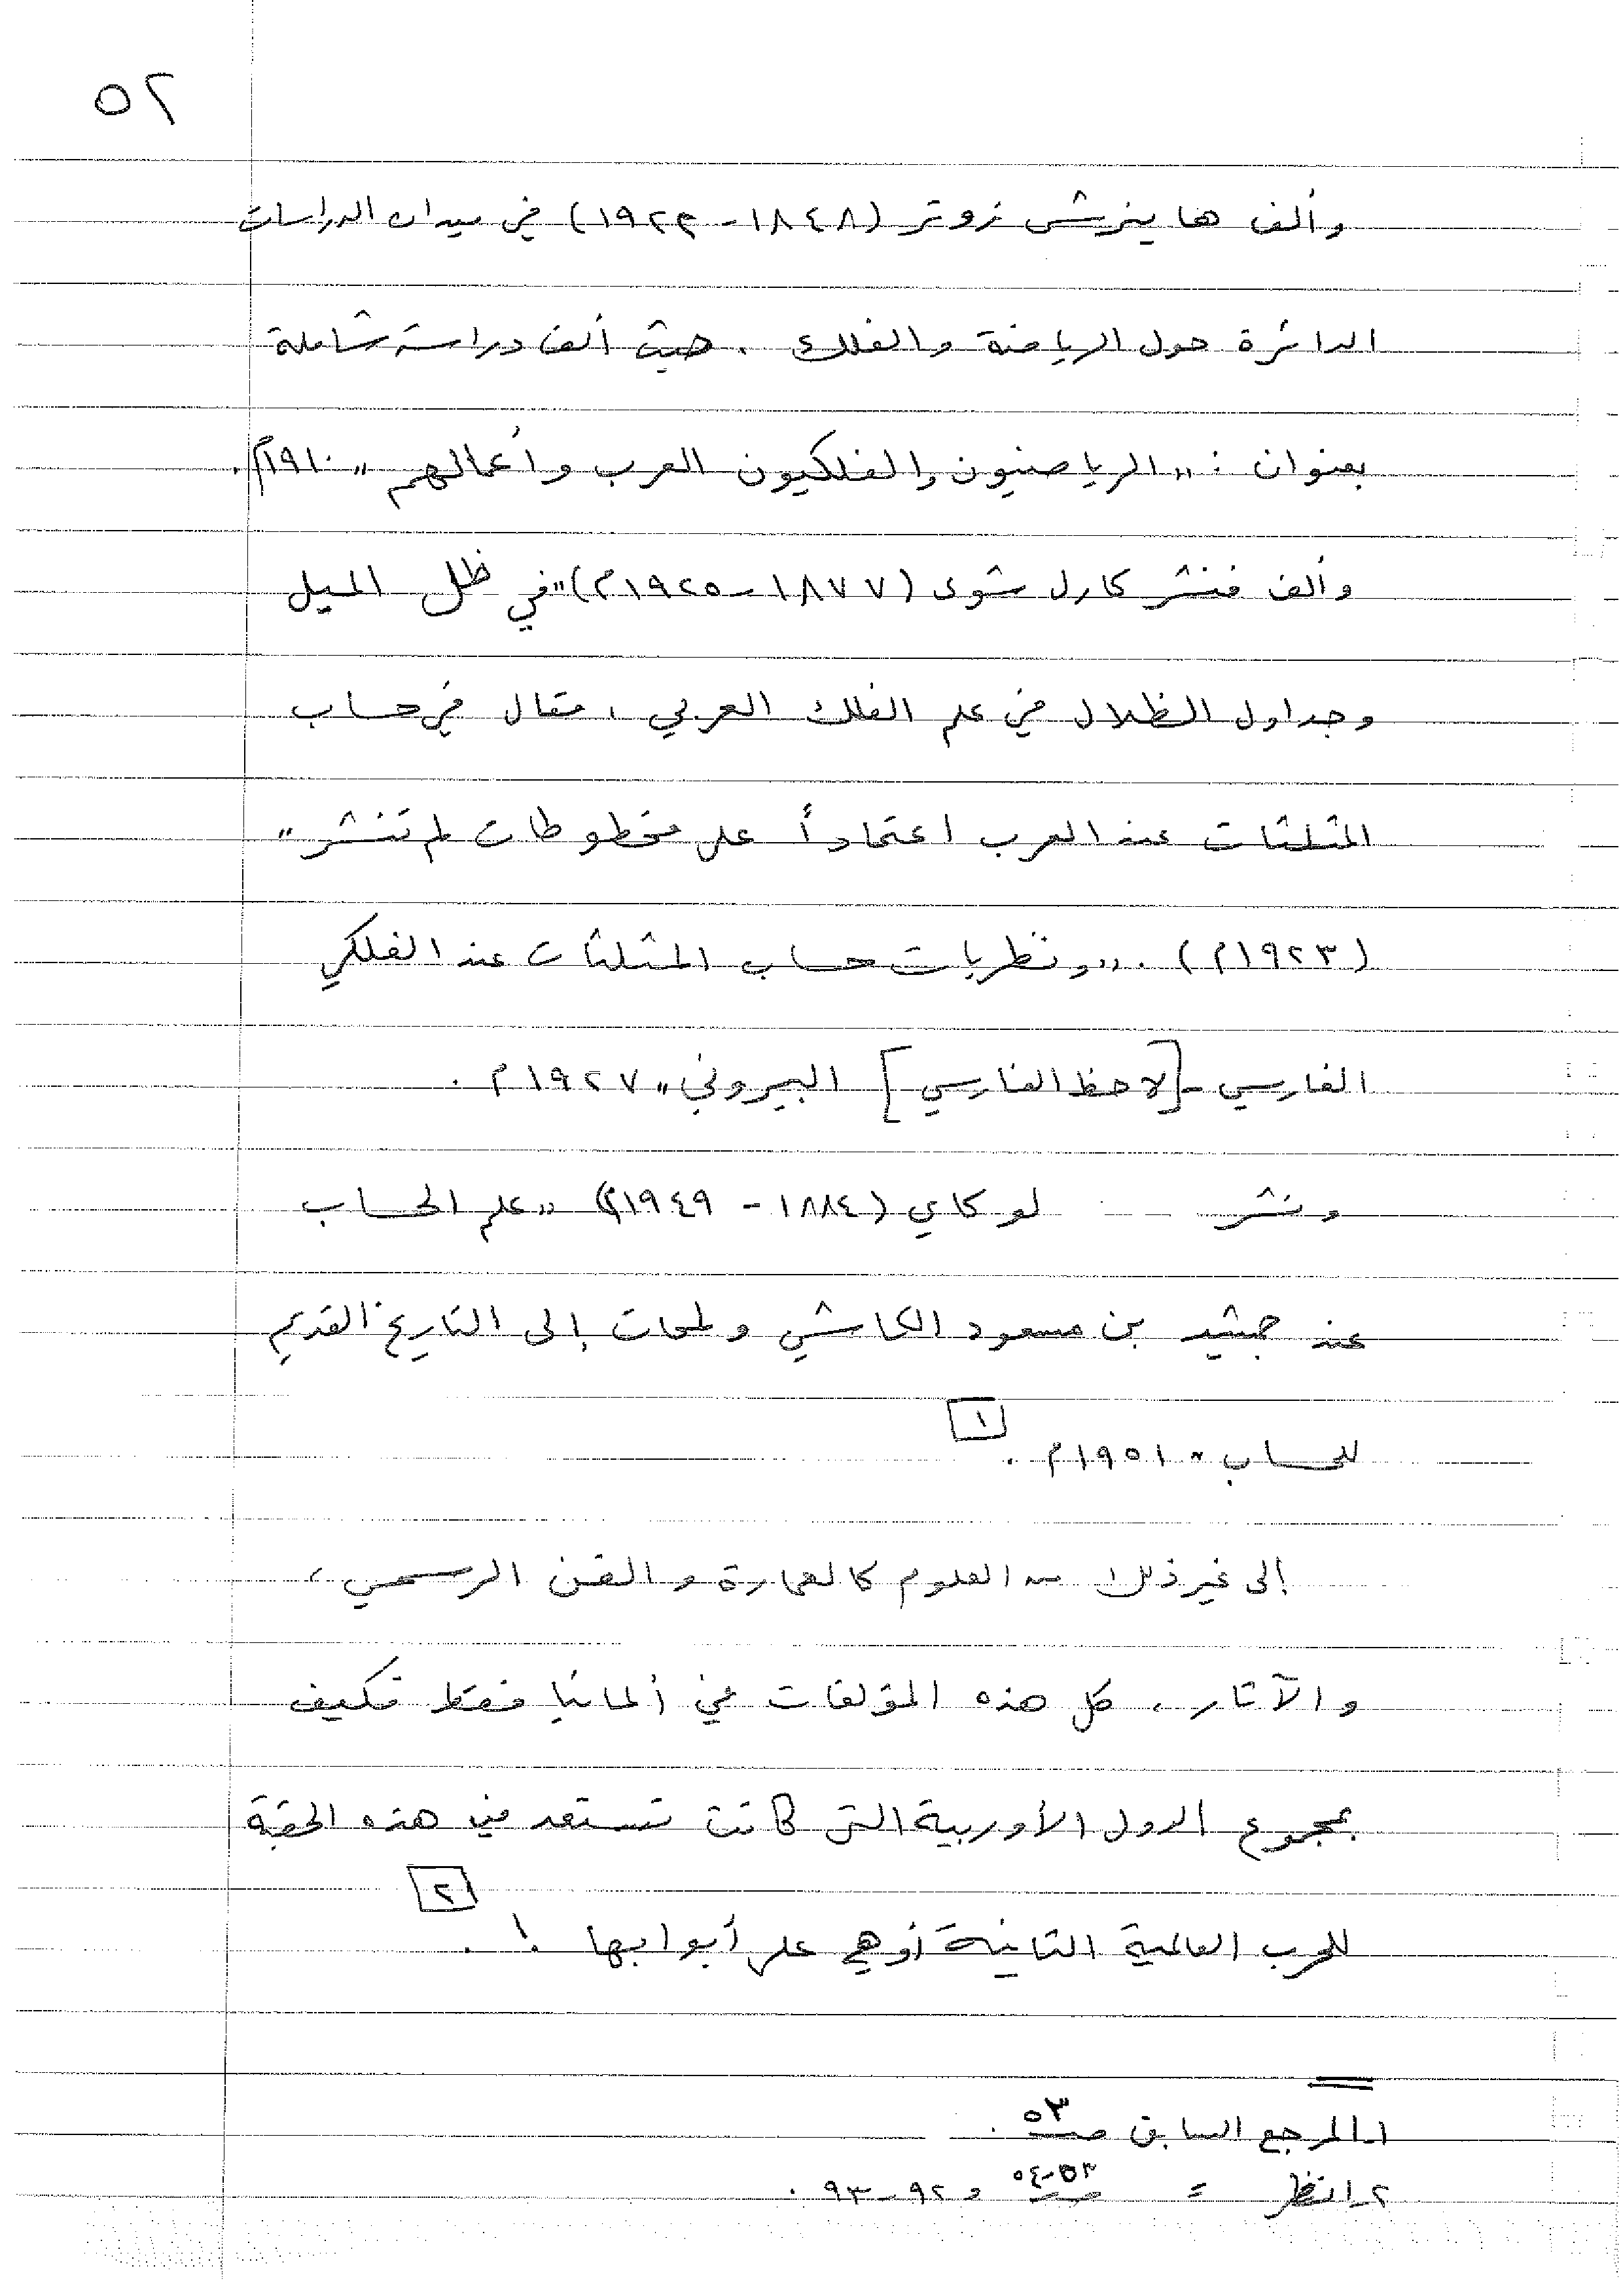 ٥٢
وألف هاينرش زوتر (١٨٤٨ - ١٩٢٢م) في ميدان الدراسات
الدائرة حول الرياضة والفلك . حيث ألف دراسة شاملة
بعنوان : " الرياضيون والفلكيون العرب وأعمالهم " ١٩١٠م .
وألف فنشر كارل شوى (١٨٧٧ - ١٩٢٥م) " في ظل الميل
وجداول الظلال في علم الفلك العربي ، مقال في حساب
المثلثات عند العرب اعتماداً على مخطوطات لم تنشر "
(١٩٢٣م) . " ونظريات حساب المثلثات عند الفلكي
الفارسي - [لاحظ الفارسي] البيروني " ١٩٢٧م .
ونشر لوكاي (١٨٨٤ - ١٩٤٩م) " علم الحساب
عند جمشيد بن مسعود الكاشي ولمحات إلى التاريخ القديم
للحساب " ١٩٥١م . [١]
إلى غير ذلك من العلوم كالعمارة والفن الرسمي ،
والآثار . كل هذه المؤلفات في ألمانيا فقط فكيف
بمجموع الدول الأوربية التي كانت تستعد في هذه الحقبة
للحرب العالمية الثانية أو هي على أبوابها ! . [٢]
١ـ المرجع السابق صـ ٥٣ .
٢ـ انظر = صـ ٥٣-٥٤ و ٩٢-٩٣ .